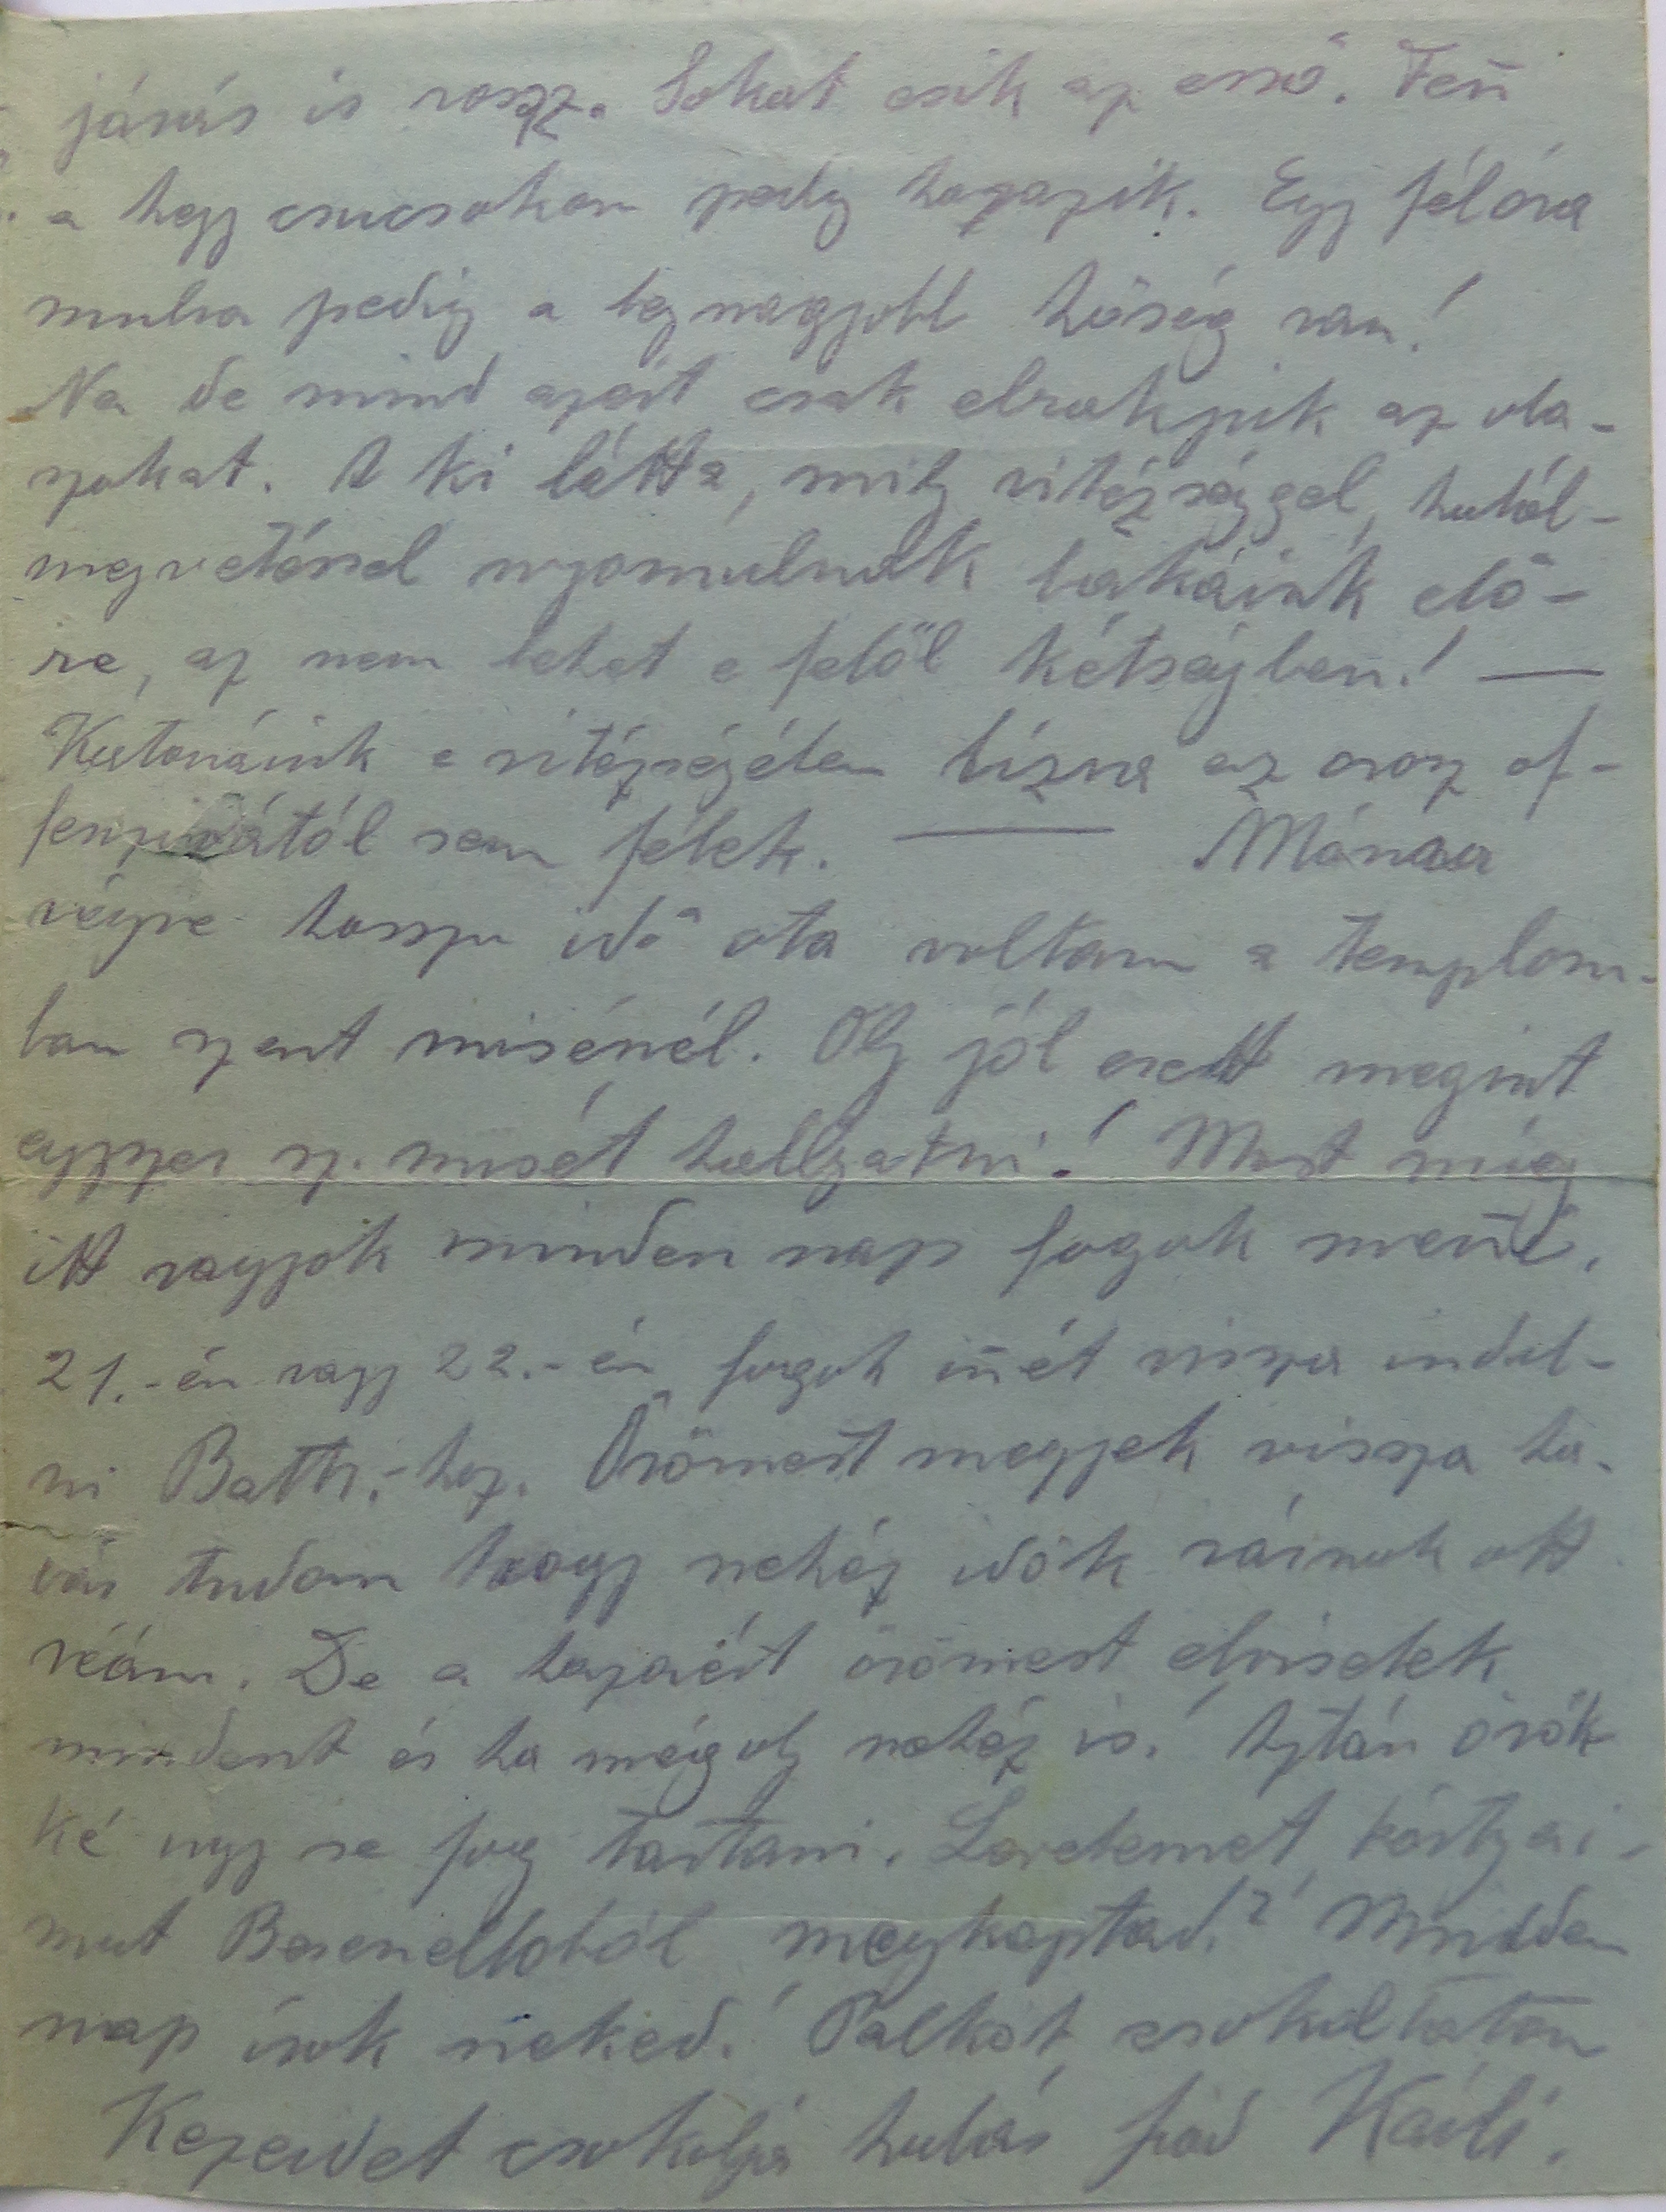 járás is rossz. Sokat esik az eső. Fen̄
a hegy csucsokon pedig havazik. Egy félóra
mulva pedig a legnagyobb hőség van!
Na de mind azért csak elrakjuk az ola-
szokat. A ki látta, mily vitézséggel, halál-
megvetéssel nyomulnak bakáink elő-
re, az nem lehet e felől kétségben! —
Katonáink e vitézségében bízva az orosz of-
fenzivától sem félek. — Máma
végre hosszu idő ota voltam a templom-
ban szent misénél. Oly jól esett megint
egyszer sz. misét hallgatni! Most míg
itt vagyok minden nap fogok men̄i.
21.-én vagy 22.-én fogok im̄ét vissza indul-
ni Battr.-hoz. Örömest megyek vissza ha-
bár tudom hogy nehéz idők várnak ott
reám. De a hazáért örömest elviselek
mindent és ha mégoly nehéz is! Aztán örök-
ké ugy se fog tartani. Levelemet, kártyái-
mat Besenelloból megkaptad? Minden
nap írok neked! Palkót csokoltatom
Kezeidet csokolja hálás fiad Karli.